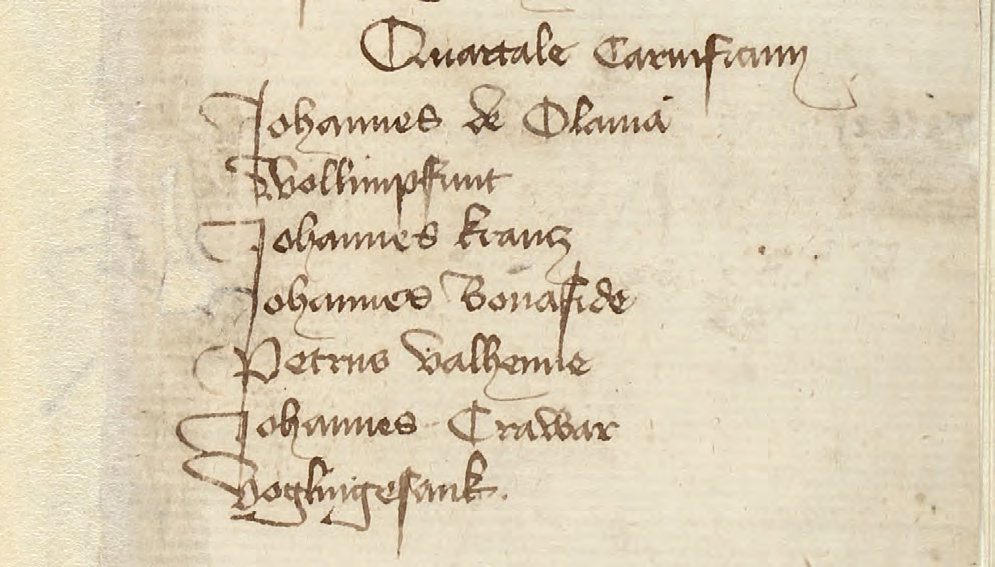 Quartale Carnificum
Johannes de Olavia
Wollimpffunt
Johannes krancz
Johannes Bonafide
Petrus valhenne
Johannes Crawar
voglingesank.